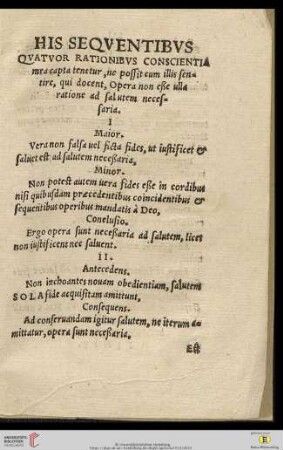 HIS SEQVENTIBVS
QVATVOR RATIONIBVS CONSCIENTIA
mea capta tenetur, ne possit cum illis sen-
tire, qui docent, Opera non eße ulla
ratione ad salutem neces-
saria.
I
Maior.
Vera non falsa uel ficta fides, ut iustificet &
saluet est ad salutem neceßaria.
Minor.
Non potest autem uera fides eße in cordibus
nisi quibusdam præcedentibus coincidentibus &
sequentibus operibus mandatis à Deo.
Conclusio.
Ergo opera sunt neceßaria ad salutem, licet
non iustificent nec saluent.
II.
Antecedens.
Non inchoantes nouam obedientiam, salutem
SOLA fide acquisitam amittunt.
Consequens.
Ad conseruandam igitur salutem, ne iterum a-
mittatur, opera sunt neceßaria.